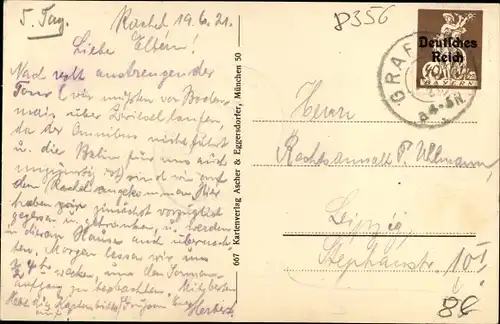 5. Tag. Rachel 19.6.21.
Liebe Eltern!
Nach recht anstrengender
Tour (wir mußten von Boden-
mais über Zwiesel laufen,
da der Omnibus nicht fährt
u. die Bahn für uns auch
ungünstig ist) sind wir auf
dem Rachel angekommen. Hier
haben wir zunächst vorzüglich
gegessen u. getrunken, u. werden
in diesem Hause auch übernach-
ten. Morgen lassen wir uns
wecken, um den Sonnen-
aufgang zu beobachten.
Hebt die Karten bitte auf!
Herbert
667 Kartenverlag Ascher & Eggersdorfer, München 50
P356
Deutsches
Reich
BAYERN
GRAF
Herrn
Rechtsanwalt P. Uhlmann,
Leipzig,
Stephanstr. 10 I
8€